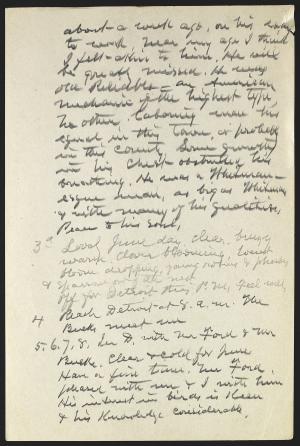 about a week ago, on his way
to work. Near my age I think
I felt akin to him. He will
be greatly missed. He was
old Reliable — an American
mechanic of the highest type,
no other laboring man his
equal in this town, or probably
in this county. Some growth
in his chest obstructed his
breathing. He was a Whitman-
esque man, as big as Whitman
& with many of his qualities.
Peace to his soul.
3d Lovely June day, clear, breezy
warm, clover blooming, locust
bloom dropping, young robins & phoebes
& sparrows out of the nest
Off for Detroit this P.M., feel well,
4 Reach Detroit at 8 a.m. The
Bucks meet me
5, 6, 7, 8. In D. with Mr Ford & Mr
Bucks. Clear & cold for June
Have a fine time. Mr Ford
pleased with me & I with him
His interest in birds is keen
& his knowledge considerable.